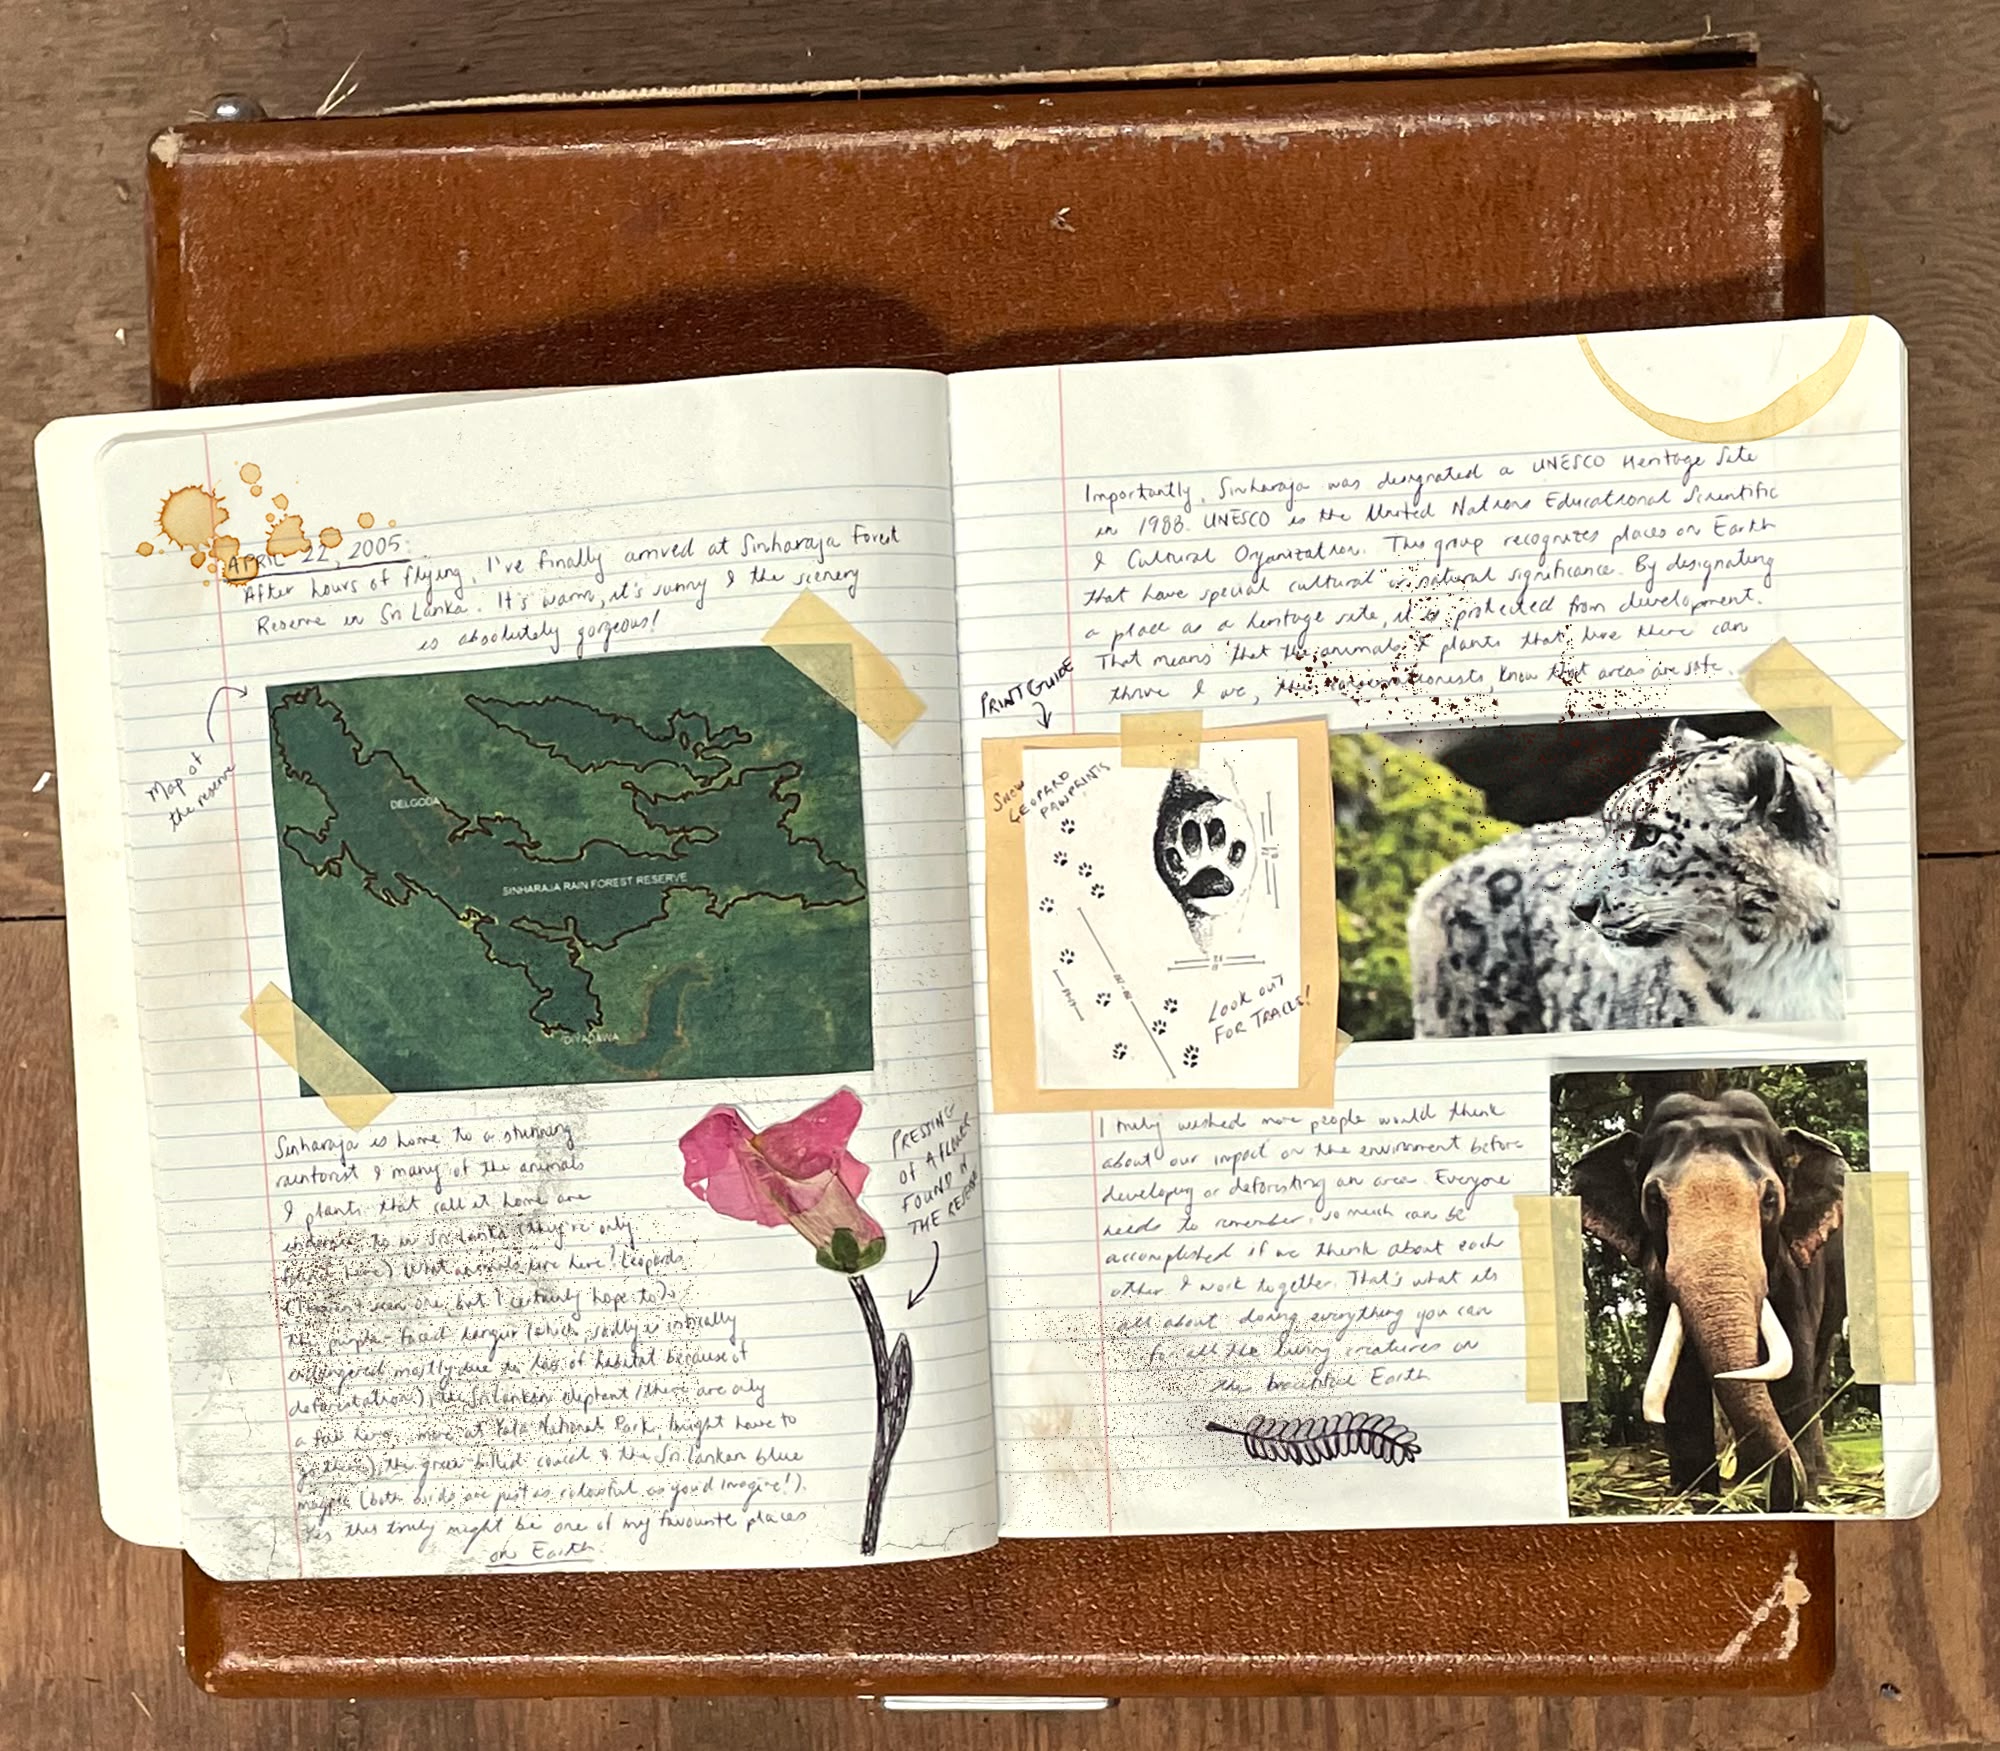 APRIL 22, 2005:
After hours of flying, I've finally arrived at Sinharaja Forest
Reserve in Sri Lanka. It's warm, it's sunny & the scenery
is absolutely gorgeous!
Map of
the reserve
DELGODA
SINHARAJA RAIN FOREST RESERVE
DIYADAWA
Sinharaja is home to a stunning
rainforest & many of the animals
& plants that call it home are
endemic to in Sri Lanka (they're only
found here) What animals live here? Leopards
(I haven't seen one, but I certainly hope to),
the purple-faced langur (which, sadly is critically
endangered mostly due to loss of habitat because of
deforestation), the Sri Lankan elephant (there are only
a few here, more at Yala National Park, might have to
go there), the green billed coucal & the Sri Lankan blue
magpie (both birds are just as colourful as you'd imagine!).
Yes this truly might be one of my favourite places
on Earth
PRESSING
OF A FLOWER
FOUND IN
THE RESERVE
Importantly, Sinharaja was designated a UNESCO Heritage Site
in 1988. UNESCO is the United Nations Educational Scientific
& Cultural Organization. This group recognizes places on Earth
that have special cultural or natural significance. By designating
a place as a heritage site, it is protected from development.
That means that the animals & plants that live there can
thrive & we, the conservationists, know that areas are safe.
PRINT GUIDE
SNOW
LEOPARD
PAWPRINTS
LOOK OUT
FOR TRACKS!
I truly wished more people would think
about our impact on the environment before
developing or deforesting an area. Everyone
needs to remember, so much can be
accomplished if we think about each
other & work together. That's what its
all about: doing everything you can
for all the living creatures on
the beautiful Earth